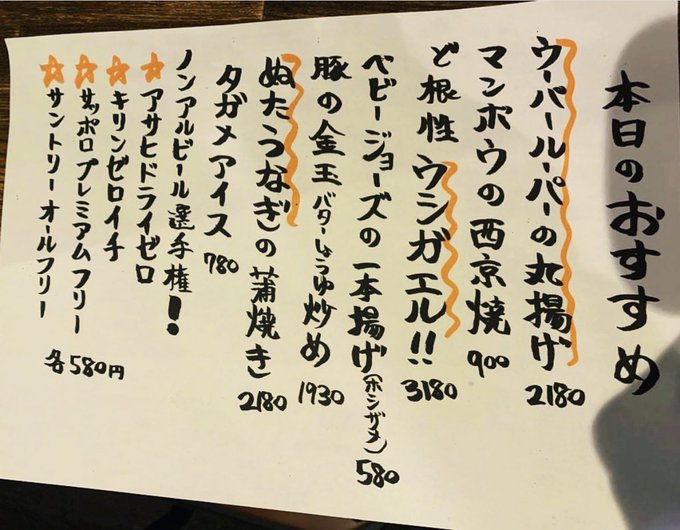 本日のおすすめ
ウーパールーパーの丸揚げ 2180
マンボウの西京焼 900
ど根性 ウシガエル!! 3180
ベビージョーズの一本揚げ(ホシザメ) 580
豚の金玉 バターしょうゆ炒め 1930
ぬたうなぎの蒲焼き 2180
タガメアイス 780
ノンアルビール選手権!
☆アサヒドライゼロ
☆キリンゼロイチ
☆サッポロプレミアムフリー
☆サントリーオールフリー
各580円